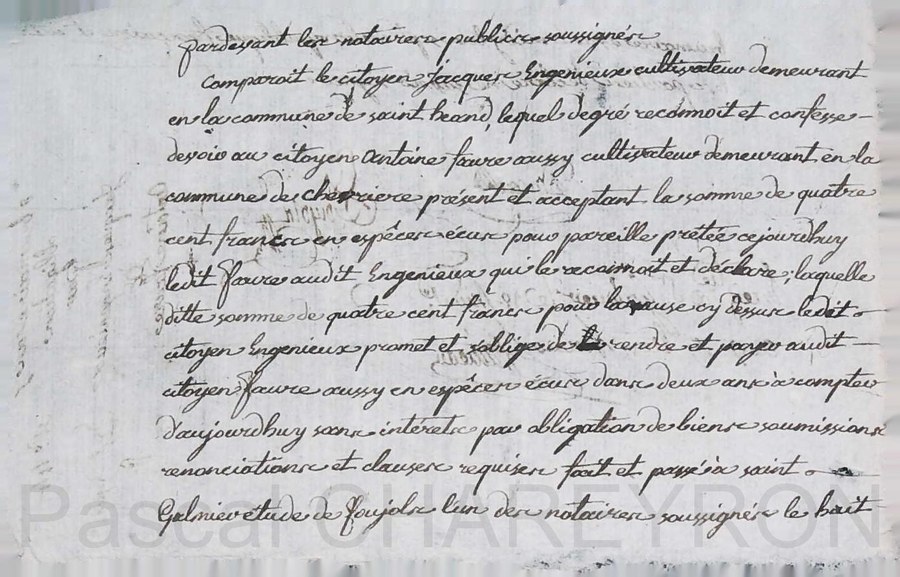 pardevant les notaires publics soussignés
comparoit le citoyen jacques Engenieux cultivateur demeurant
en la commune de saint heand, lequel de gré reconnoit et confesse
devoir au citoyen antoine faure aussy cultivateur demeurant en la
commune de chevriere présent et acceptant la somme de quatre
cent francs en espêces écus pour pareille prétée cejourdhuy
ledit faure audit Engenieux qui le reconnoit et déclare, laquelle
ditte somme de quatre cent francs pour la cause cy dessus ledit
citoyen Engenieux promet et soblige de rendre et payer audit
citoyen faure aussy en espêces écus dans deux ans à compter
d'aujourdhuy sans intérets par obligation de biens soumissions
renonciations et clauses requises fait et passé à saint
Galmier etude de foujols lun des notaires soussignés le huit
Pascal CHAREYRON